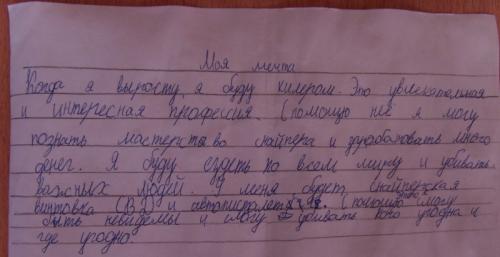 Моя мечта
Когда я выросту, я буду килером. Это увлекательная
и интересная профессия. (помощю неё я могу
познать мастерство снайпера и зарабатовать много
денег. Я буду ездеть по всем миру и убивать
важных людей. У меня будет снайперская
винтовка и автопистолет (помощю смогу
быть невидемы и смогу убивать кого угодна и
где угодно.